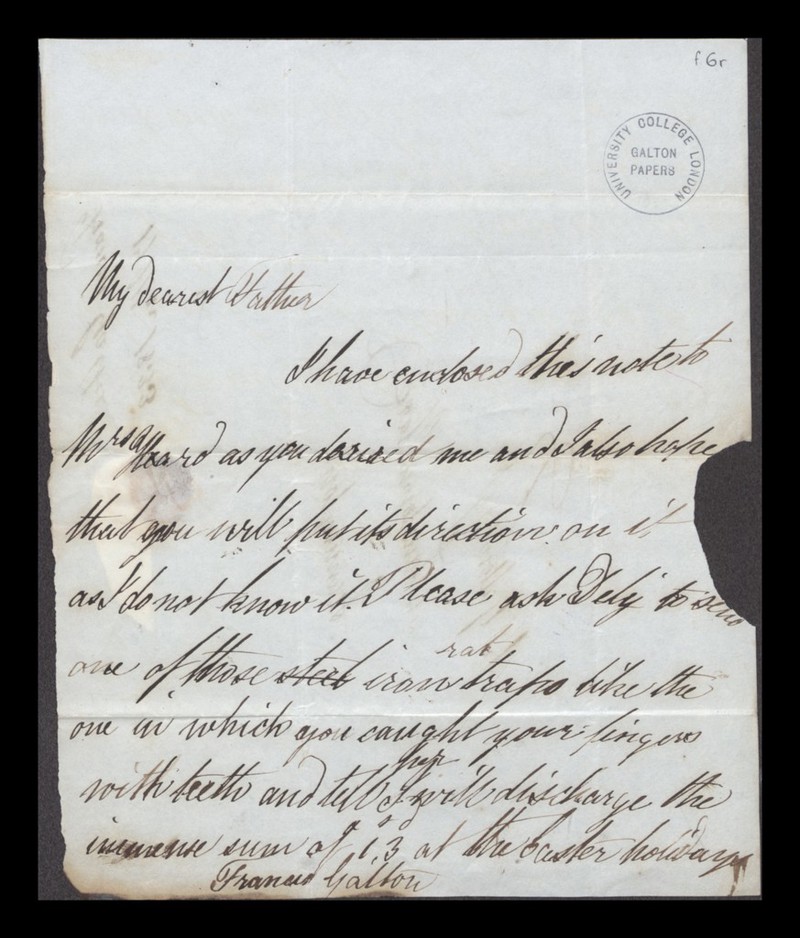 f 6r
UNIVERSITY COLLEGE LONDON
GALTON
PAPERS
My dearest Father
I have enclosed this note to
Mrs Ward as you desired me and I also hope
that you will put its direction on it
as I do not know it. Please ask Dely to send
rat
one of those steel iron traps like the
one in which you caught your fingers
her
with teeth and tell I will discharge the
immense sum of 1s,3d at the Easter holidays
Francis Galton